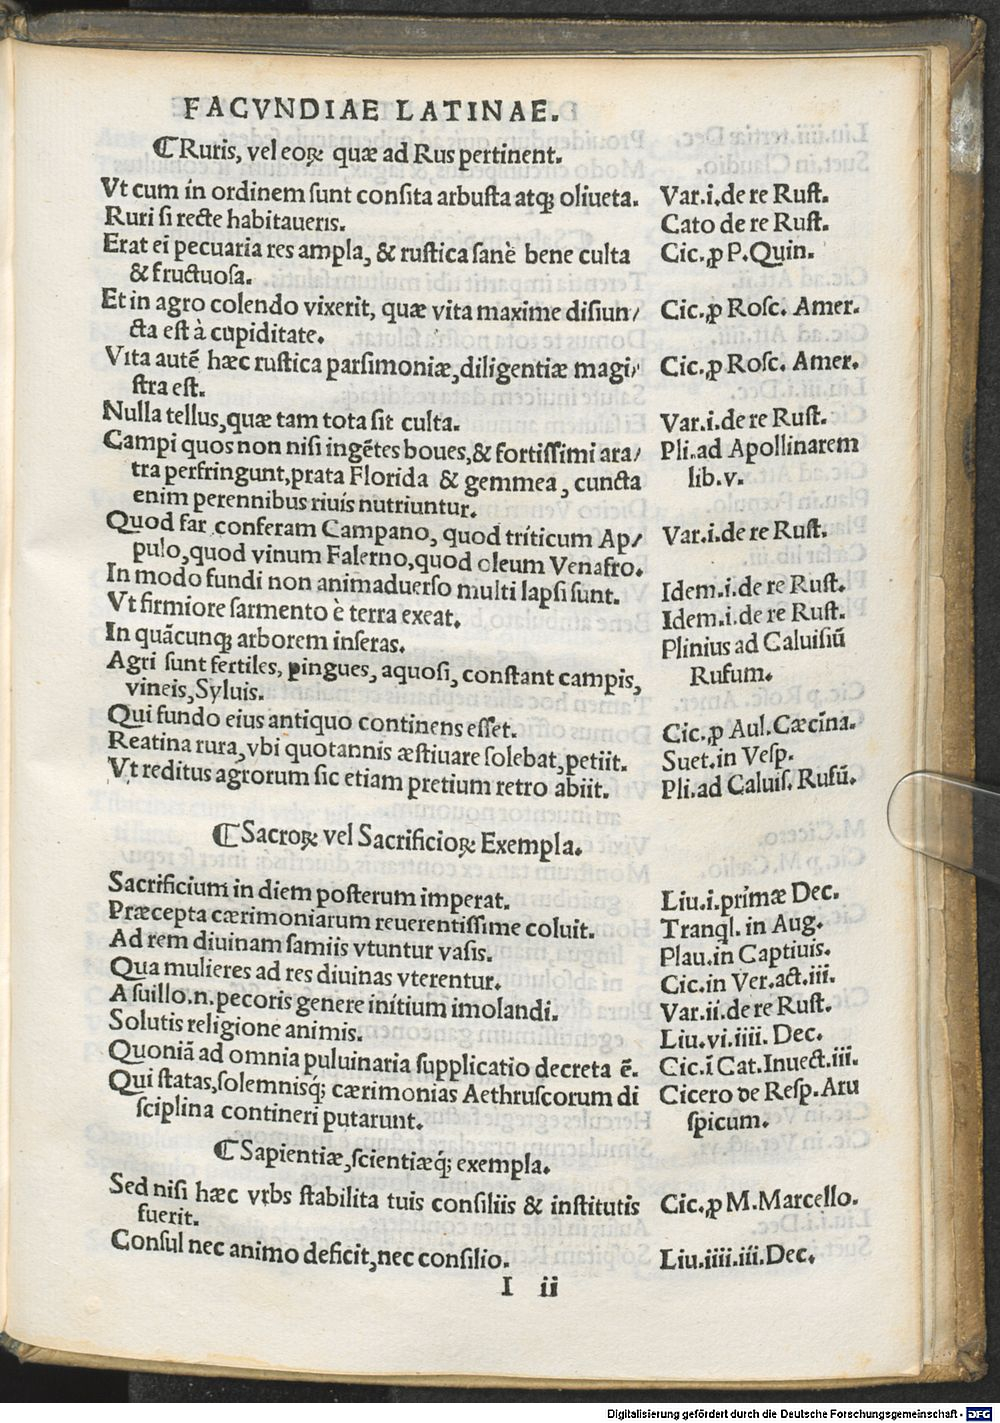 FACVNDIAE LATINAE.
⁋Ruris, vel eoꝝ quæ ad Rus pertinent.
Vt cum in ordinem sunt consita arbusta atqꝫ oliueta. Var.i.de re Rust.
Ruri si recte habitaueris. Cato de re Rust.
Erat ei pecuaria res ampla, & rustica sanè bene culta Cic.ꝓ P.Quin.
& fructuosa.
Et in agro colendo vixerit, quæ vita maxime disiun/ Cic.ꝓ Rosc. Amer.
cta est à cupiditate.
Vita autē hæc rustica parsimoniæ,diligentiæ magi/ Cic.ꝓ Rosc. Amer.
stra est.
Nulla tellus,quæ tam tota sit culta. Var.i.de re Rust.
Campi quos non nisi ingētes boues,& fortissimi ara/ Pli.ad Apollinarem
tra perfringunt,prata Florida & gemmea, cuncta lib.v.
enim perennibus riuis nutriuntur.
Quod far conferam Campano, quod triticum Ap/ Var.i.de re Rust.
pulo,quod vinum Falerno,quod oleum Venafro.
In modo fundi non animaduerso multi lapsi sunt. Idem.i.de re Rust.
Vt firmiore sarmento è terra exeat. Idem.i.de re Rust.
In quācunqꝫ arborem inseras. Plinius ad Caluisiū
Agri sunt fertiles, pingues, aquosi, constant campis, Rufum.
vineis, Syluis.
Qui fundo eius antiquo continens esset. Cic.ꝓ Aul.Cæcina.
Reatina rura, vbi quotannis æstiuare solebat,petiit. Suet.in Vesp.
Vt reditus agrorum sic etiam pretium retro abiit. Pli.ad Caluis. Rufū.
⁋Sacroꝝ vel Sacrificioꝝ Exempla.
Sacrificium in diem posterum imperat. Liu.i.primæ Dec.
Præcepta cærimoniarum reuerentissime coluit. Tranql. in Aug.
Ad rem diuinam samiis vtuntur vasis. Plau.in Captiuis.
Qua mulieres ad res diuinas vterentur. Cic.in Ver.act.iii.
A suillo.n.pecoris genere initium imolandi. Var.ii.de re Rust.
Solutis religione animis. Liu.vi.iiii. Dec.
Quoniā ad omnia puluinaria supplicatio decreta ē. Cic.ī Cat.Inuect.iii.
Qui statas,solemnisqꝫ cærimonias Aethruscorum di Cicero de Resp.Aru
sciplina contineri putarunt. spicum.
⁋Sapientiæ,scientiæqꝫ exempla.
Sed nisi hæc vrbs stabilita tuis consiliis & institutis Cic.ꝓ M.Marcello.
fuerit.
Consul nec animo deficit,nec consilio. Liu.iiii.iii.Dec.
I ii
Digitalisierung gefördert durch die Deutsche Forschungsgemeinschaft - DFG